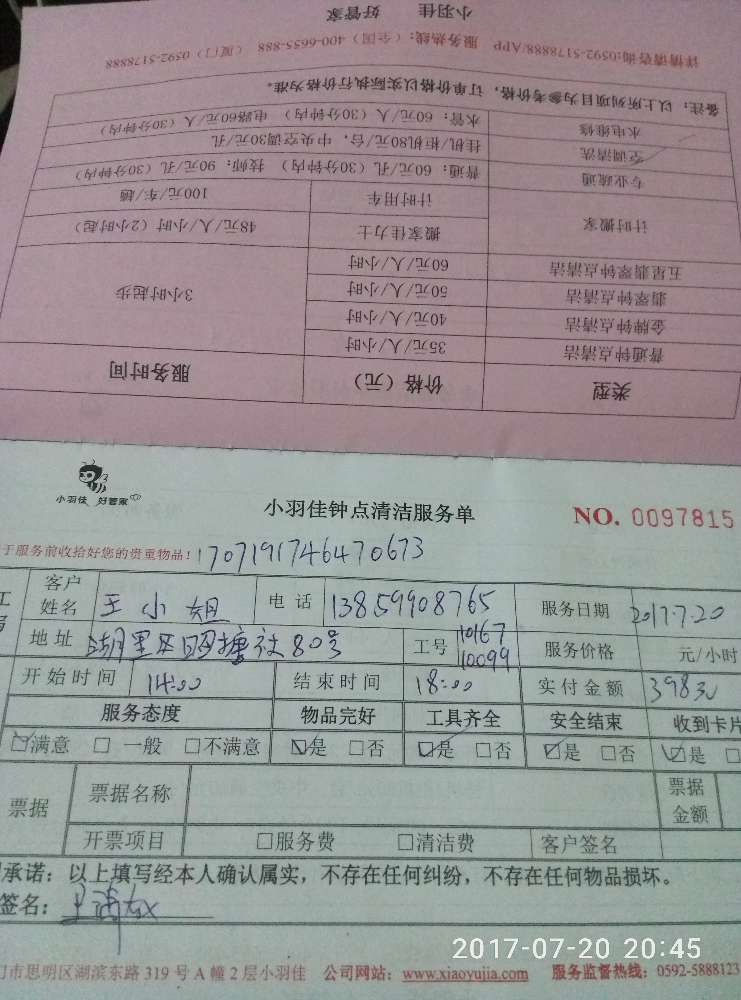 类型 价格(元) 服务时间
普通钟点清洁 35元/人/小时 3小时起步
金牌钟点清洁 40元/人/小时
翡翠钟点清洁 50元/人/小时
五星翡翠钟点清洁 60元/人/小时
计时搬家 搬家佳力士 48元/人/小时(2小时起)
计时用车 100元/车/趟
专业疏通 普通:60元/孔(30分钟内) 技师:90元/孔(30分钟内)
空调清洗 挂机/柜机80元/台,中央空调30元/孔
水电维修 水管:60元/人(30分钟内) 电路60元/人(30分钟内)
备注:以上所列项目为参考价格,订单价格以实际执行价格为准。
详情请咨询:0592-5178888/APP 服务热线:(全国)400-6655-888 (厦门)0592-5178888
小羽佳 好管家
小羽佳 好管家
小羽佳钟点清洁服务单 NO. 0097815
于服务前收拾好您的贵重物品! 1707191746470673
客户姓名 王小姐 电话 13859908765 服务日期 2017.7.20
地址 湖里区 社80号 工号 10167 10099 服务价格 元/小时
开始时间 14:00 结束时间 18:00 实付金额 398元
服务态度 物品完好 工具齐全 安全结束 收到卡片
☑满意 □一般 □不满意 ☑是 □否 ☑是 □否 ☑是 □否 ☑是
票据 票据名称 票据金额
开票项目 □服务费 □清洁费 客户签名
承诺:以上填写经本人确认属实,不存在任何纠纷,不存在任何物品损坏。
签名:
2017-07-20 20:45
门市思明区湖滨东路319号A幢2层小羽佳 公司网站:www.xiaoyujia.com 服务监督热线:0592-5888123